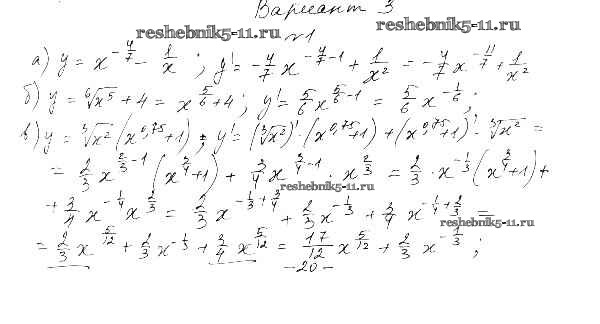 Вариант 3
reshebnik5-11.ru reshebnik5-11.ru
№1
а) y = x^{-4/7} - 1/x ; y' = -4/7 x^{-4/7-1} + 1/x² = -4/7 x^{-11/7} + 1/x²
б) y = ⁶√x⁵ + 4 = x^{5/6} + 4 ; y' = 5/6 x^{5/6-1} = 5/6 x^{-1/6} ;
в) y = ³√x² (x^{0,75} + 1) ; y' = (³√x²)' · (x^{0,75} + 1) + (x^{0,75} + 1)' · ³√x² =
= 2/3 x^{2/3-1} (x^{3/4} + 1) + 3/4 x^{3/4-1} · x^{2/3} = 2/3 · x^{-1/3} (x^{3/4} + 1) +
reshebnik5-11.ru
+ 3/4 x^{-1/4} x^{2/3} = 2/3 x^{-1/3+3/4} + 2/3 x^{-1/3} + 3/4 x^{-1/4+2/3} =
reshebnik5-11.ru
= 2/3 x^{5/12} + 2/3 x^{-1/3} + 3/4 x^{5/12} = 17/12 x^{5/12} + 2/3 x^{-1/3} ;
-20-